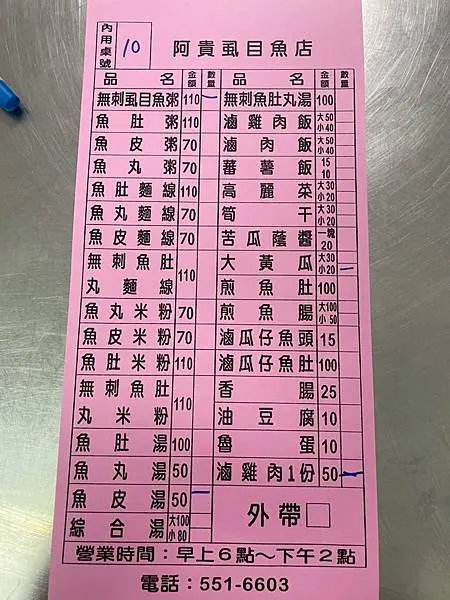 內用桌號 10
阿貴虱目魚店
品名 金額 數量
無刺虱目魚粥 110 一
魚肚粥 110
魚皮粥 70
魚丸粥 70
魚肚麵線 110
魚丸麵線 70
魚皮麵線 70
無刺魚肚
丸麵線 110
魚丸米粉 70
魚皮米粉 70
魚肚米粉 110
無刺魚肚
丸米粉 110
魚肚湯 100
魚丸湯 50
魚皮湯 50 一
綜合湯 大100 小80
品名 金額 數量
無刺魚肚丸湯 100
滷雞肉飯 大50 小40
滷肉飯 大50 小40
蕃薯飯 15 10
高麗菜 大30 小20
筍干 大30 小20
苦瓜蔭醬 一塊 20
大黃瓜 大30 小20 一
煎魚肚 100
煎魚腸 大100 小50
滷瓜仔魚頭 15
滷瓜仔魚肚 100
香腸 25
油豆腐 10
魯蛋 10
滷雞肉1份 50 一
外帶□
營業時間：早上6點～下午2點
電話：551-6603